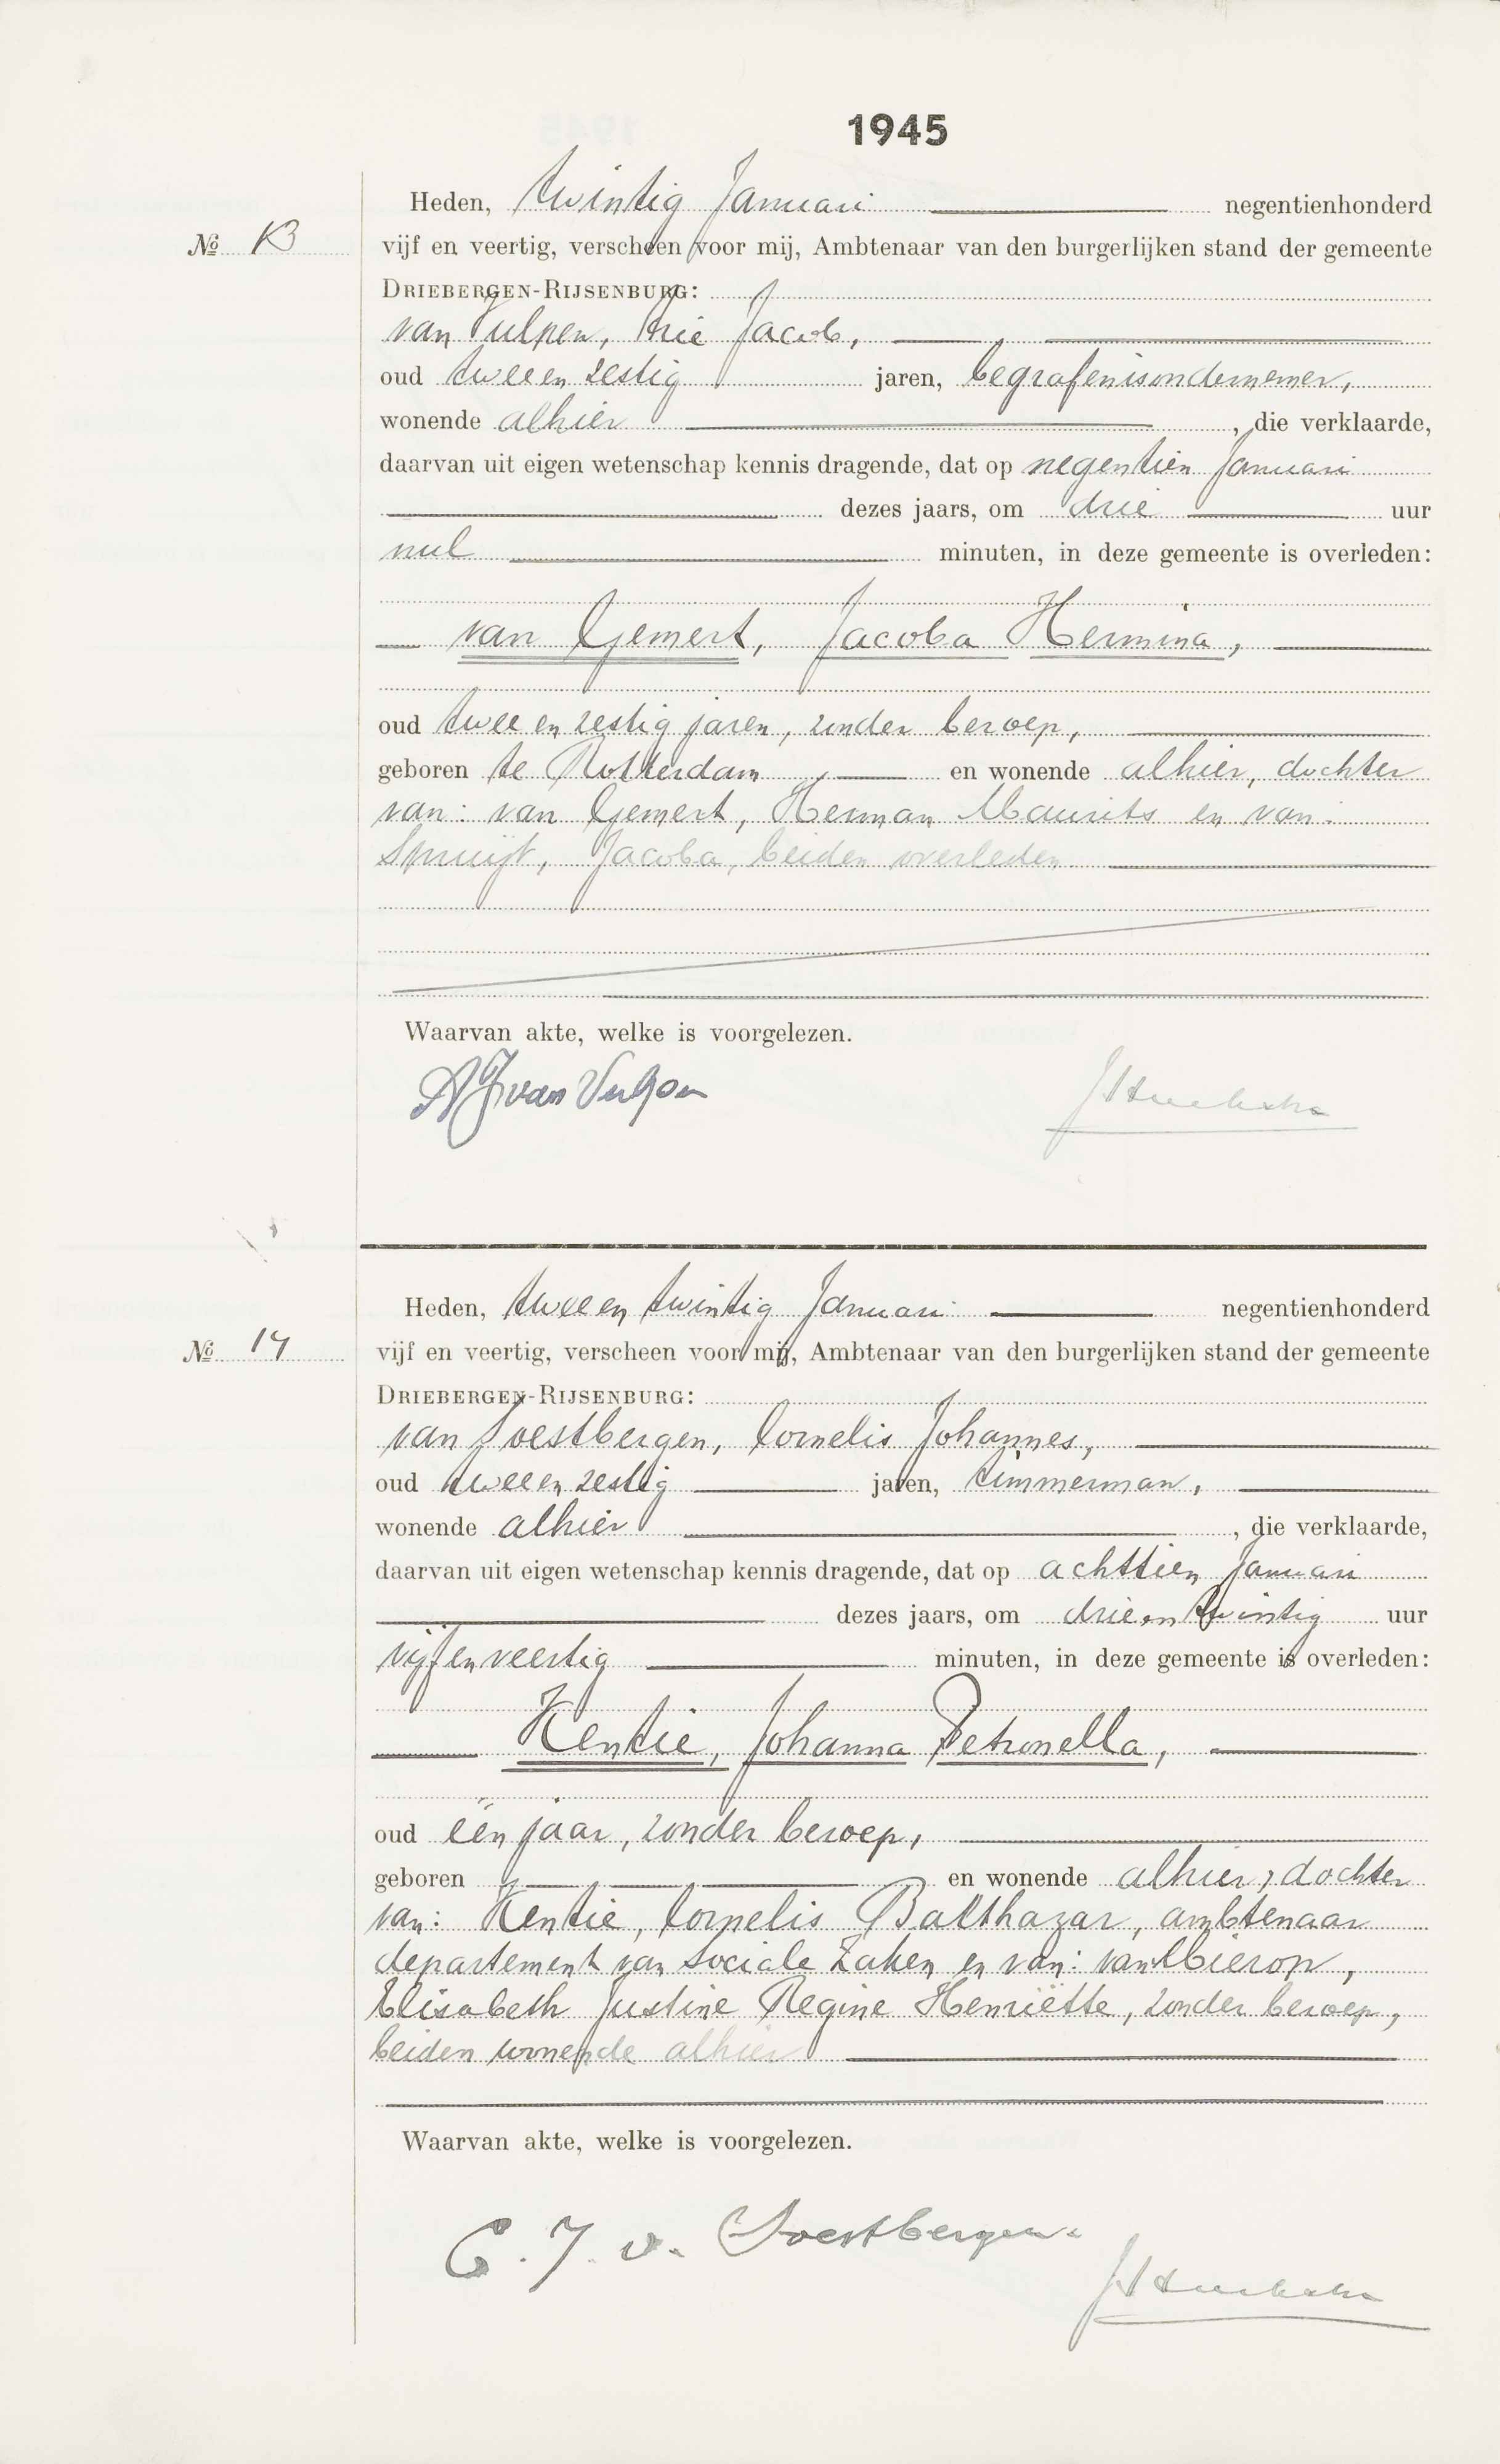 1945
Heden, twintig Januari negentienhonderd
No 13
vijf en veertig, verscheen voor mij, Ambtenaar van den burgerlijken stand der gemeente
DRIEBERGEN-RIJSENBURG:
van Vulpen, Arie Jacob,
oud twee en zestig jaren, begrafenisondernemer,
wonende alhier , die verklaarde,
daarvan uit eigen wetenschap kennis dragende, dat op negentien Januari
dezes jaars, om drie uur
nul minuten, in deze gemeente is overleden:
van Gemert, Jacoba Hermina,
oud twee en zestig jaren, zonder beroep,
geboren te Rotterdam en wonende alhier, dochter
van: van Gemert, Herman Maurits en van:
Spruijt, Jacoba, beiden overleden
Waarvan akte, welke is voorgelezen.
AJ van Vulpen
Heden, twee en twintig Januari negentienhonderd
No 14
vijf en veertig, verscheen voor mij, Ambtenaar van den burgerlijken stand der gemeente
DRIEBERGEN-RIJSENBURG:
van Soestbergen, Cornelis Johannes,
oud twee en zestig jaren, timmerman,
wonende alhier , die verklaarde,
daarvan uit eigen wetenschap kennis dragende, dat op achttien Januari
dezes jaars, om drie en twintig uur
vijf en veertig minuten, in deze gemeente is overleden:
Kentie, Johanna Petronella,
oud één jaar, zonder beroep,
geboren en wonende alhier, dochter
van: Kentie, Cornelis Balthazar, ambtenaar
departement van Sociale Zaken en van: van Mierop,
Elisabeth Justine Regine Henriëtte, zonder beroep,
beiden wonende alhier
Waarvan akte, welke is voorgelezen.
C. J. v. Soestbergen.